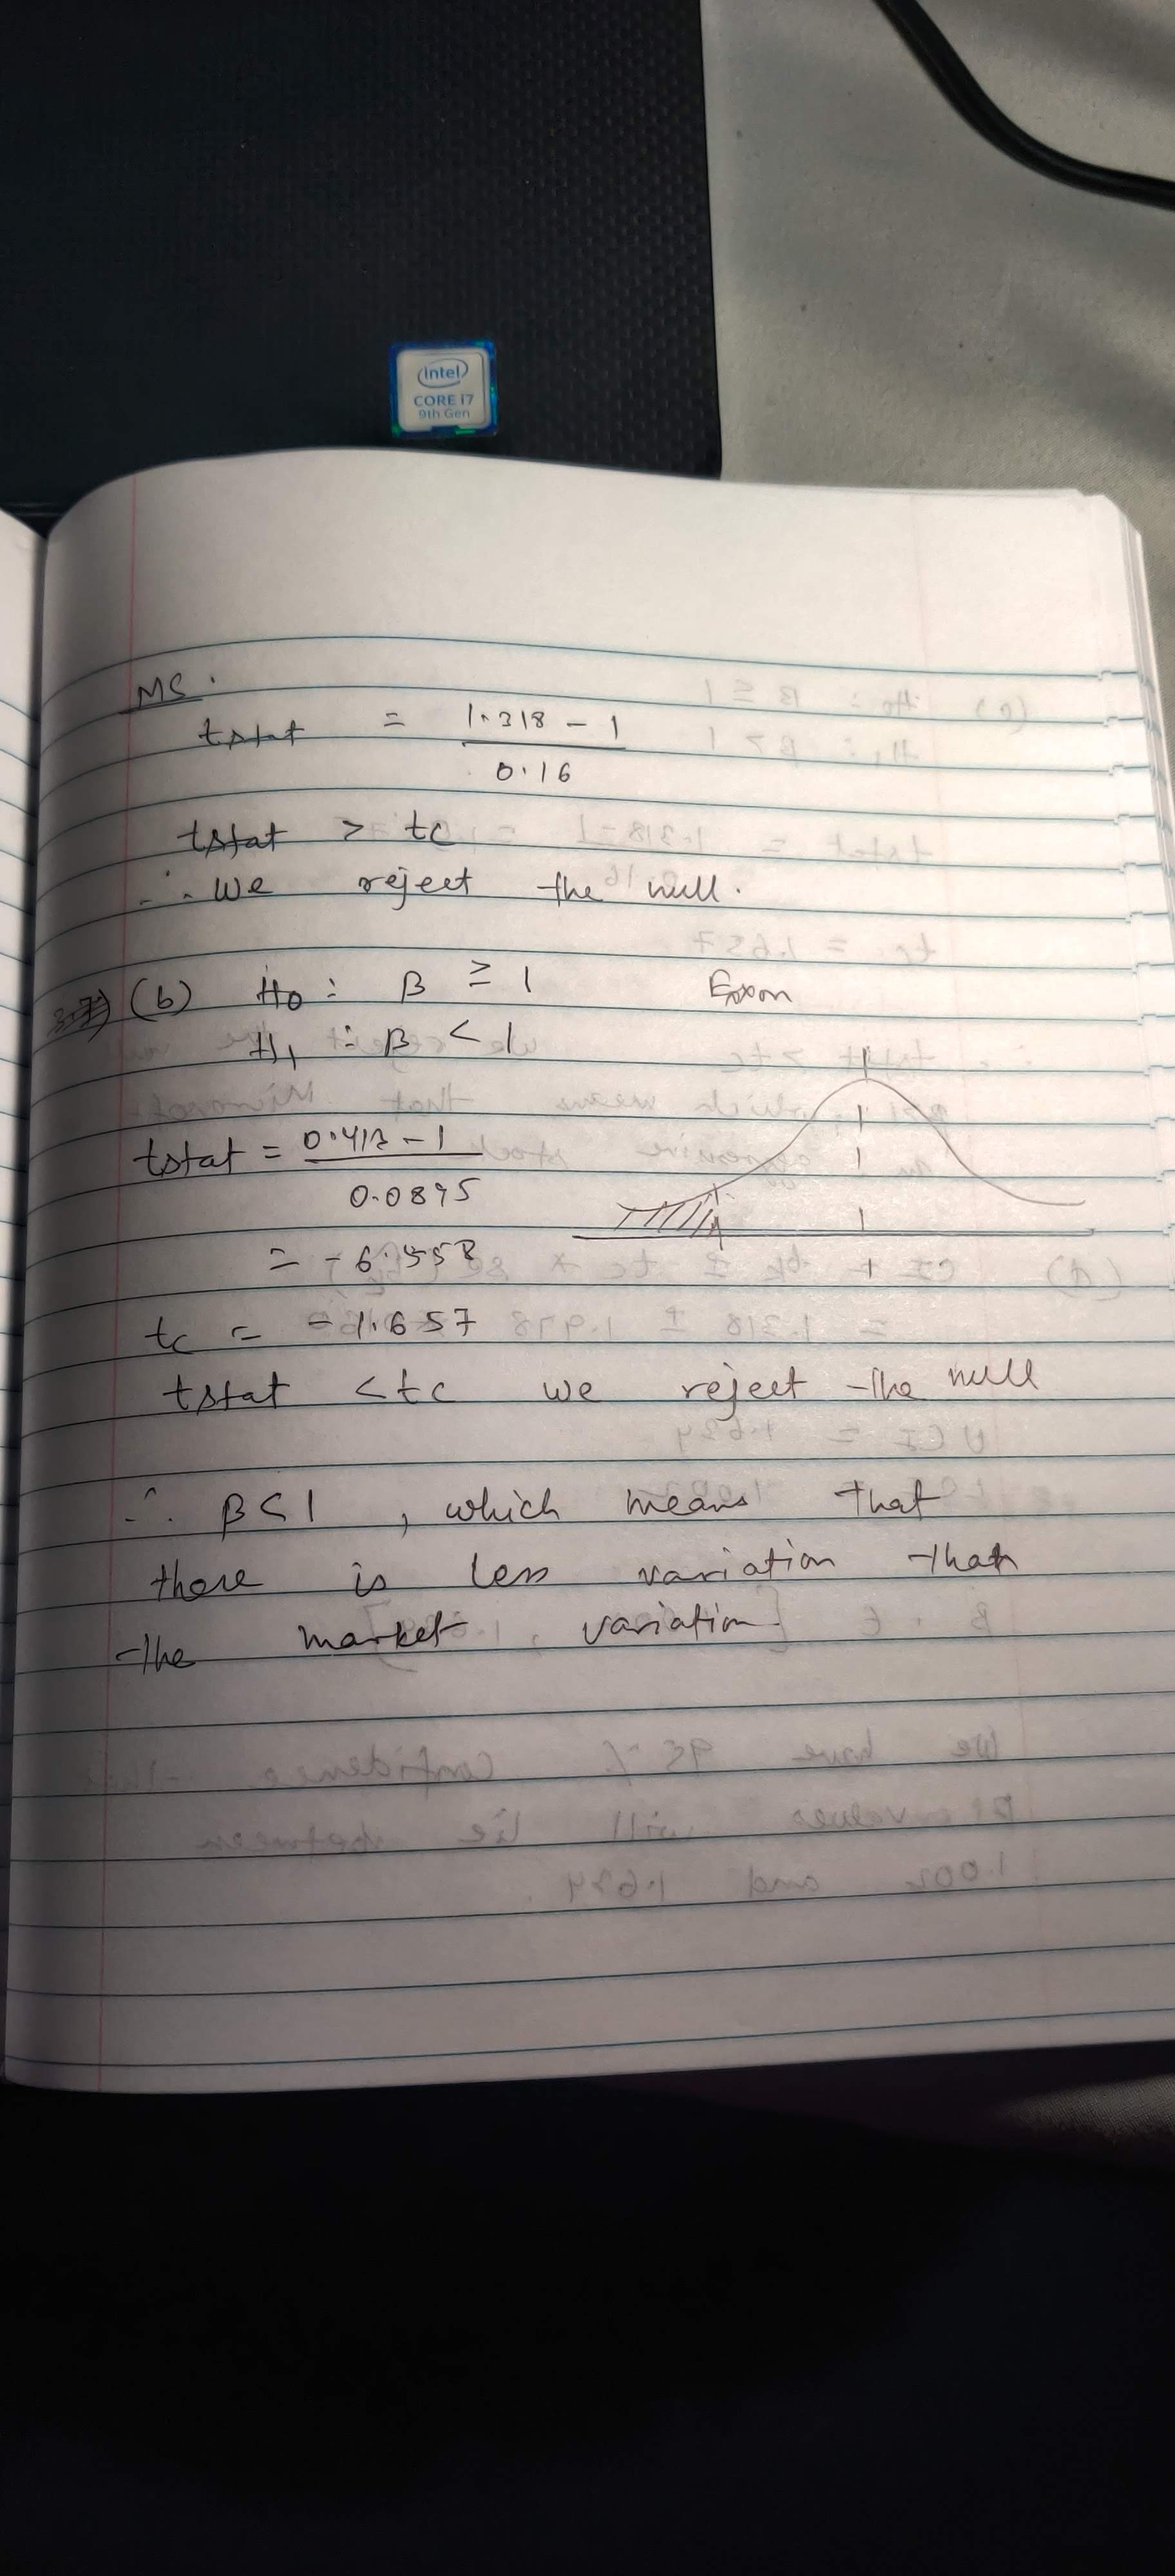 intel
CORE i7
9th Gen
MS.
tstat = 1.318 - 1
0.16
tstat > tc
∴ We reject the null.
(b) H0 : β ≥ 1 Exxon
H1 : β < 1
tstat = 0.413 - 1
0.0895
= -6.558
tc = -1.657
tstat < tc we reject the null
∴ β < 1 , which means that
there is less variation than
the market variation